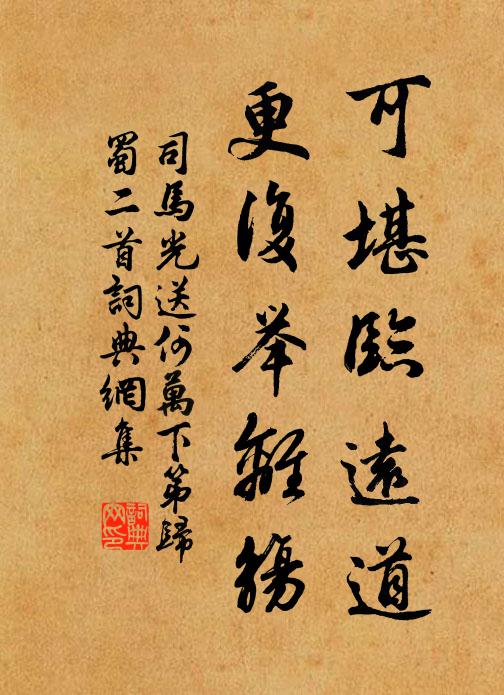 可堪臨遠道
更復举離觴
司馬光送何萬下第歸
蜀二首詞典網集
詞典
网印